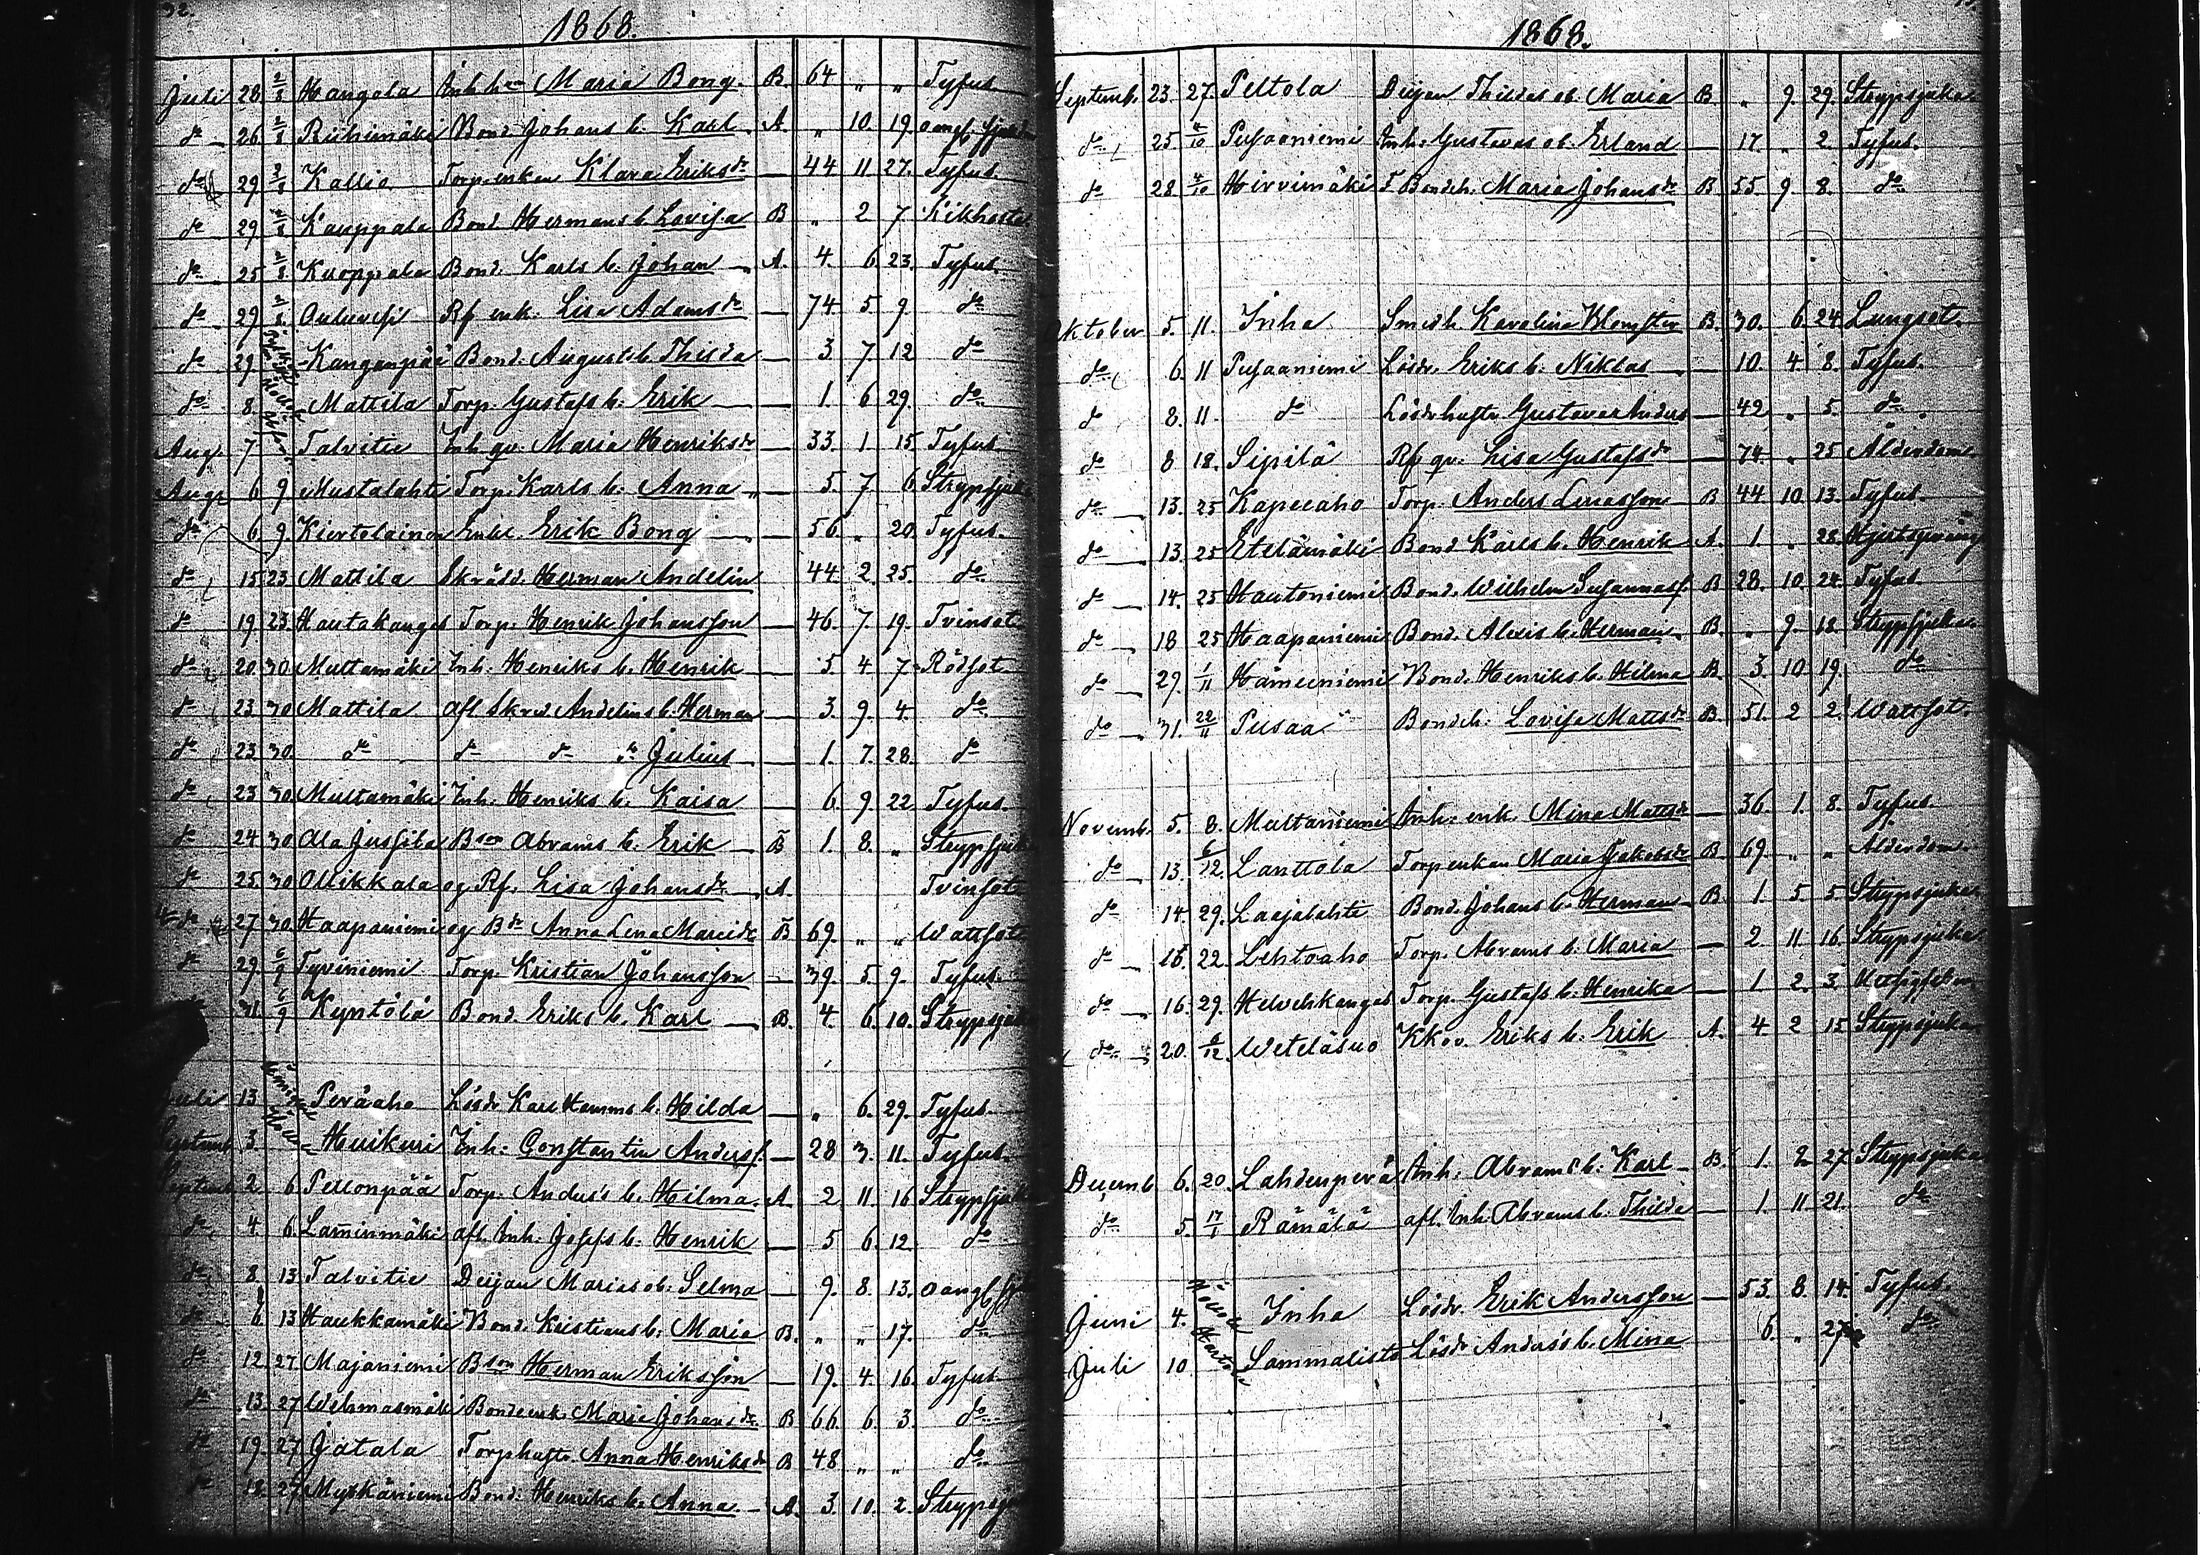 32.
1868.
Juli 28 2/8 Hangola Inh. hu Maria Bong. B. 64 " " Tyfus
do 26 2/8 Riihimäki Bond. Johans b. Karl A. " 10. 19. oangf. sjukdom
do 29 2/8 Kallio Torp.enkan Klara Eriksdr — 44 11 27. Tyfus
do 29 2/8 Kauppala Bond. Hermans b. Lovisa B " 2 7 Kikhosta
do 25 2/8 Kuoppala Bond. Karls b. Johan A. 4. 6. 23. Tyfus
do 29 2/8 Ouluvesi Rf enk: Lisa Adamsdr — 74. 5 9 do
do 29 Kanganpää Bond. Augusts b. Thilda — 3 7. 12 do
do 8. Mattila Torp. Gustafs b. Erik — 1. 6 29. do
Aug. 7 Talvitie Inh. qv. Maria Henriksdr — 33. 1 15. Tyfus
Aug. 6 9 Mustalahti Torp. Karls b. Anna — 5. 7. 6 Strypsjuk.
do 6 9 Kiertolainen Enkl. Erik Bong — 56 " 20. Tyfus.
do 15 23 Mattila Skrädd. Herman Andelin 44 2. 25. do
do 19. 23. Hautakangas Torp. Henrik Johansson — 46. 7. 19. Tvinsot
do 20. 30 Multamäki Inh. Henriks b. Henrik — 5. 4 7. Rödsot
do 23 30 Mattila afl. Skrdd. Andelins b. Herman — 3. 9. 4. do
do 23 30. do do do b. Julius — 1. 7. 28. do
do 23 30 Multamäki Inh. Henriks b. Kaisa — 6. 9. 22 Tyfus.
do 24 30 Ala Jussila Bson Abrams b. Erik — B 1. 8. " Strypsjuk
do 25. 30 Ollikkala og Rf. Lisa Johansdr A. Tvinsot
do 27 30. Haapaniemi og Bdr Anna Lena Mariedr B 69. " " Wattsot
do 29. 6/9 Tyviniemi Torp. Kristian Johansson — 39. 5 9. Tyfus
31. 6/9 Kyntölä Bond. Eriks b. Karl — B. 4. 6. 10. Strypsjuk
Juli 13. Peräaho Lösdr Karl Hemmings b. Hilda — " 6. 29. Tyfus
Septemb 3. Huikuri Inh: Constantin Anderss. — 28 3. 11. Tyfus.
Septemb 2. 6 Pellonpää Torp. Anders's b. Hilma A. 2. 11 16 Strypsjuk
do 4. 6. Lamminmäki afl. Inh. Josefs b. Henrik — 5 6. 12. do
do 8. 13 Talvitie Deijan Marias ob: Selma — 9. 8. 13. oangf. sjuk
do 6 13 Haukkamäki Bond. Kristians b: Maria B. " " 17. do
do 12. 27 Majaniemi Bson Herman Eriksson — 19. 4. 16. Tyfus
do 13. 27 Wehmasmäki Bondeenk. Maria Johansdr B 66. 6 3. do
do 19. 27 Jatala Torphustr. Anna Henriksdr B 48 " " do
do 18. 27 Myrkäniemi Bond. Henriks b. Anna — A. 3. 10. 2. Strypsjuk
1868.
Septemb. 23. 27. Peltola Deijan Thildas ob. Maria B " 9. 29. Strypsjuka
do 25 4/10 Pusaaniemi Inh: Gustavas ob. Erland — 17. " 2. Tyfus.
do 28. 4/10 Hirvimäki F Bondeh. Maria Johansdr B 55. 9. 8. do
Oktober 5. 11. Inha Smedh. Karolina Klemster B. 30. 6. 24. Lungsot.
do 6. 11 Pusaaniemi Lösdr. Eriks b: Niklas — 10. 4 8. Tyfus.
do 8. 11. do Lösdrhustr. Gustava Anders — 42. " 5. do
do 8 18. Sipilä Rf qv. Lisa Gustafsdr — 74. " 25 Ålderdom
do 13. 25 Kapeeaho Torp. Anders — B 44 10. 13. Tyfus.
do 13. 25 Etelämäki Bond. Karls b. Henrik A. 1. " 28. Hjertsprång
do 14. 25 Hautoniemi Bond. Wilhelm Susannas. B 28. 10. 24. Tyfus
do 18 25 Haapaniemi Bond. Alexis b. Herman B. " 9. 18. Strypsjukan
do 29. 1/11 Hämeeniemi Bond. Henriks b. Hilma B. 3. 10 19. do
do 31. 22/11 Pusaa Bondeh: Lovisa Mattsdr B. 51. 2 2. Wattsot.
Novemb. 5. 8. Multaniemi Inh: enk. Mina Mattsdr — 36. 1. 8. Tyfus.
do 13. 6/12 Lanttola Torpenkan Maria Jakobsdr B. 69 " " Ålderdom.
do 14 29. Laajalahti Bond. Johans b. Herman B. 1. 5 5. Strypsjukan
do 15 22. Lehtoaho Torp. Abrams b. Maria — 2. 11. 16. Strypsjuka
do 16. 29. Helvetkangas Torp. Gustafs b. Henrika — 1 2. 3.
do 20. 6/12 Weteläsuo Kkov. Eriks b: Erik A. 4 2 15 Strypsjuka
Decemb 6. 20. Lahdenperä Inh: Abrams b: Karl — B. 1. 2. 27. Strypsjuka
do 5. 17/1 Rämälä afl. Inh. Abrams b. Thilda — 1. 11. 21. do
Juni 4. Inha Lösdr. Erik Andersson — 53. 8. 14. Tyfus.
Juli 10. Sammalisto Lösdr Anders's b. Mina 6. " 27 do